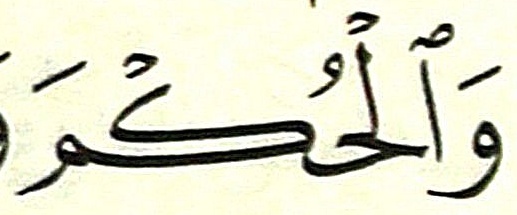 وَٱلْحُكْمَ